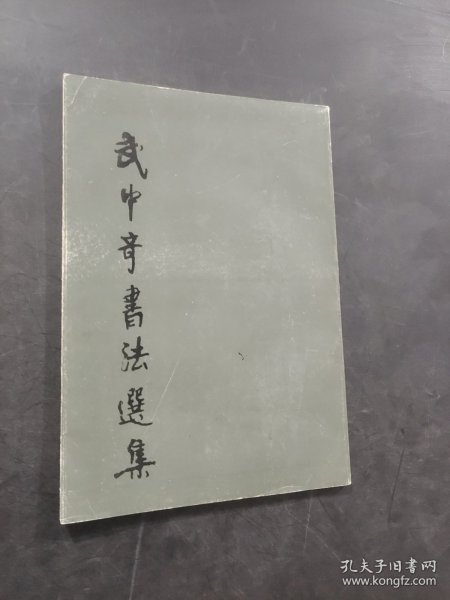 武中奇書法選集
孔夫子旧书网
www.kongfz.com